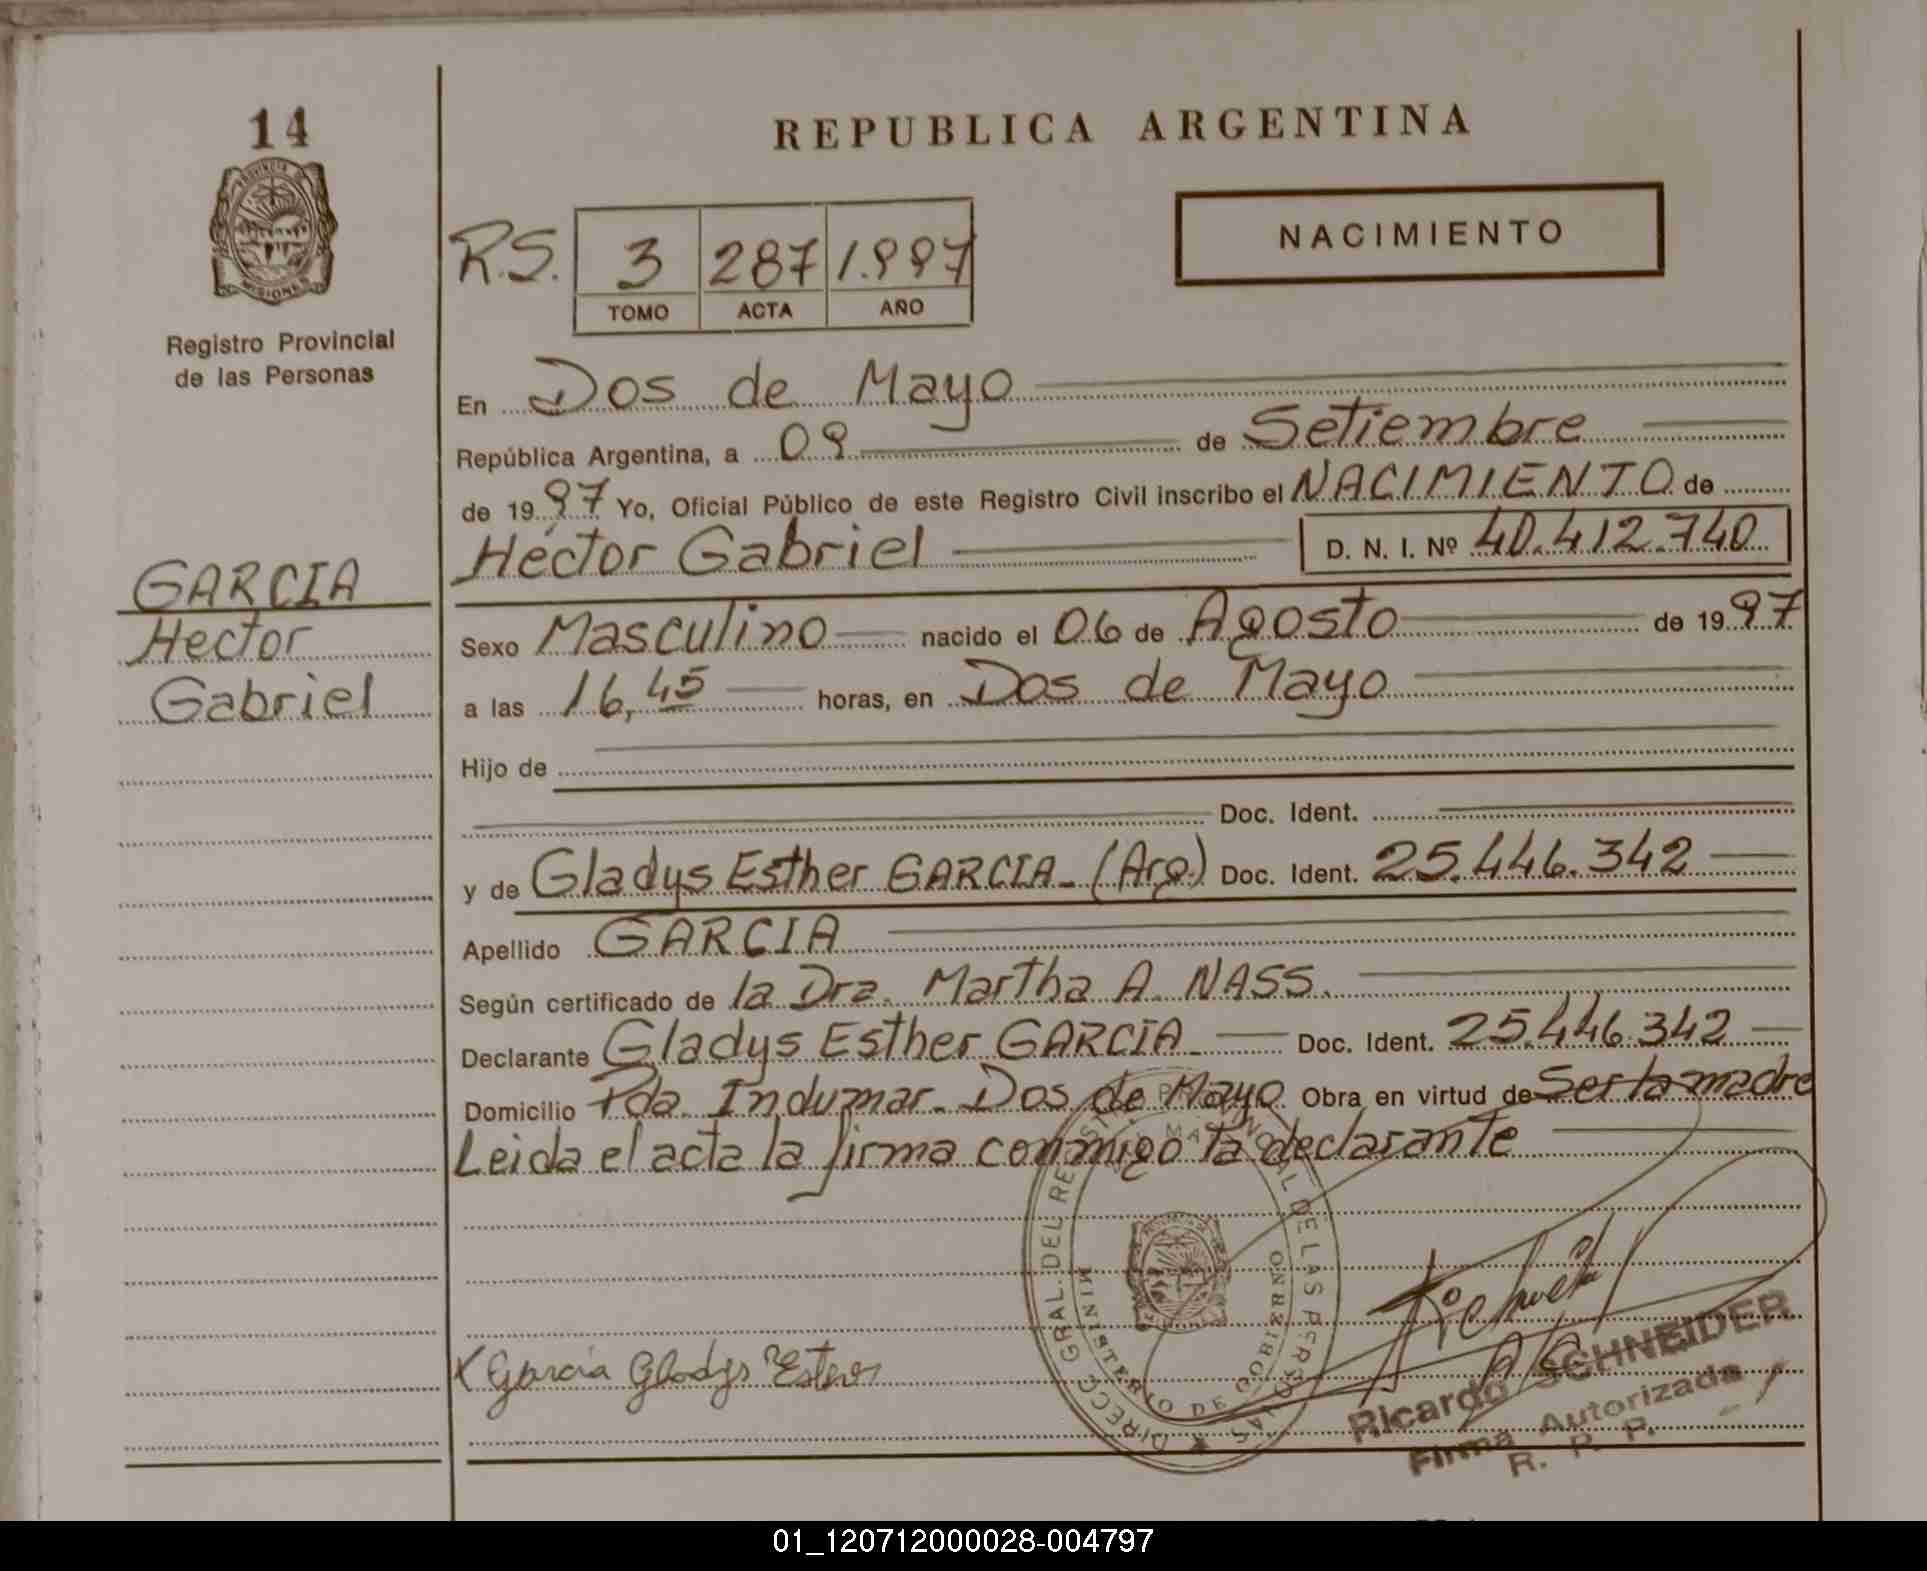 14
PROVINCIA DE
MISIONES
Registro Provincial
de las Personas
GARCIA
Hector
Gabriel
REPUBLICA ARGENTINA
NACIMIENTO
R.S. 3 287 1.997
TOMO ACTA AÑO
En Dos de Mayo
República Argentina, a 09 de Setiembre
de 1997 Yo, Oficial Público de este Registro Civil inscribo el NACIMIENTO de
Héctor Gabriel D. N. I. Nº 40.412.740
Sexo Masculino nacido el 06 de Agosto de 1997
a las 16,45 horas, en Dos de Mayo
Hijo de
Doc. Ident.
y de Gladys Esther GARCIA - (Arg.) Doc. Ident. 25.446.342
Apellido GARCIA
Según certificado de la Dra. Martha A. NASS.
Declarante Gladys Esther GARCIA - Doc. Ident. 25.446.342
Domicilio Pda. Indumar - Dos de Mayo Obra en virtud de Ser la madre
Leida el acta la firma conmigo la declarante
DIRECC GRAL. DEL REGISTRO PROVINCIAL DE LAS PERSONAS
MINISTERIO DE GOBIERNO
X Garcia Gladys Ester
Ricardo SCHNEIDER
Firma Autorizada
R. P. P.
01_120712000028-004797